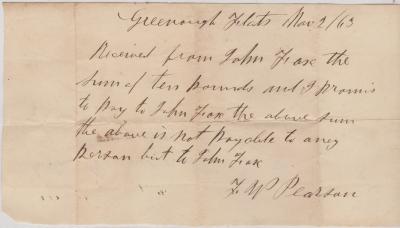 Greenough Flats Nov 2/63
Received from John Fox the
sum of ten pounds and I promis
to pay to John Fox the above sum
the above is not payable to aney
person but to John Fox
F W Pearson